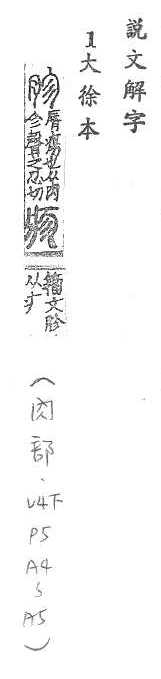 説文解字
1大徐本
胗
脣瘍也从肉
㐱聲之忍切
疹
籀文胗
从疒
(肉部、V4下
P5
A4
〜
A5)